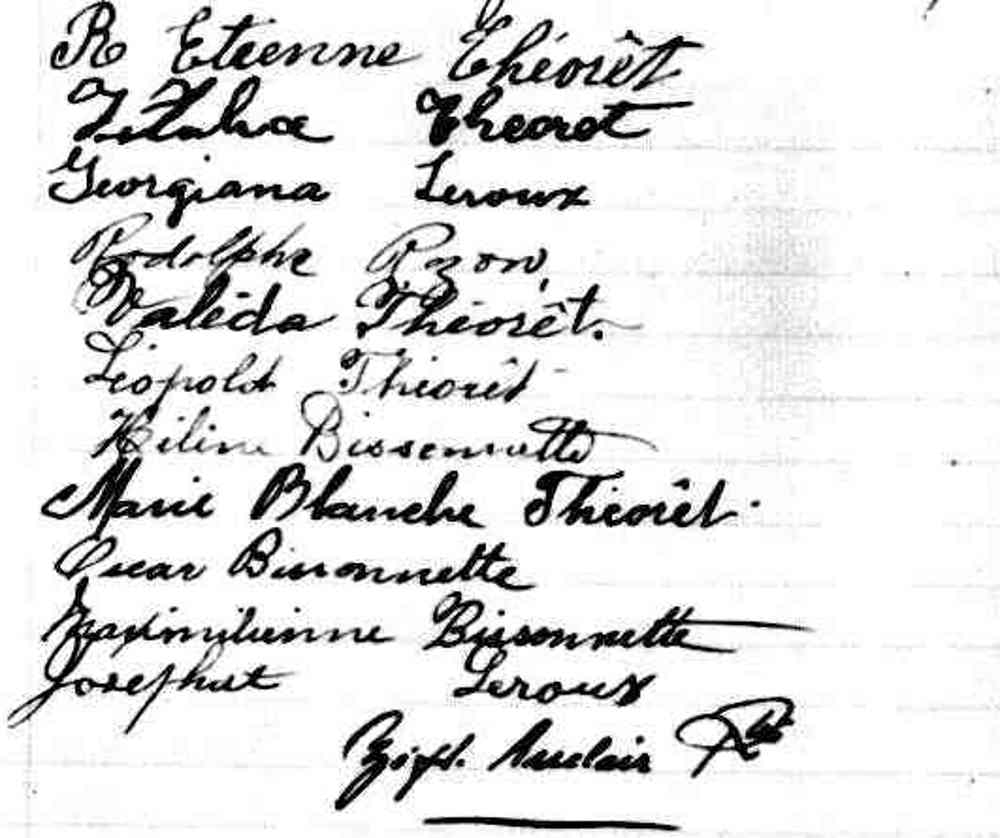 R Etienne Théorêt
Theoret
Georgiana Leroux
Rodolphe Pzon
Valéda Théorêt.
Léopold Théorêt
Bissonnette
Marie Blanche Théorêt.
Oscar Bissonnette
Maximilienne Bissonnette
Josephat Leroux
Auclair Ptr